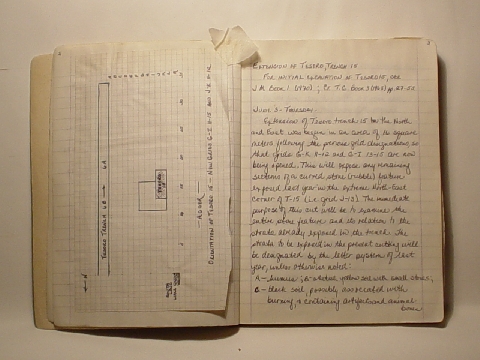 EXTENSION OF TESORO TRENCH 15
FOR INITIAL EXCAVATION OF TESORO 15, SEE
J.M. BOOK 1 (1970), T.C. BOOK 3 (1968) pp. 27-53
JUNE 3 - THURSDAY.
Extension of Tesoro trench 15 to the North
and East was begun in an area of 16 square
meters following the previous grid designations, so
that grids G-I 11-12 and G-I 13-15 are now
being opened. This will expose any remaining
sections of a curved stone (rubble) feature
exposed last year in the extreme North-East
corner of T-15 (i.e. grid J-13). The immediate
purpose of this cut will be to examine the
entire stone feature and its relation to the
strata already exposed in the trench. The
strata to be exposed in the present cutting will
be designated by the letter system of last
year, unless otherwise noted:
A - humus; B - yellow soil with small stones;
C - black soil possibly associated with
burning, & containing artifacts and animal
bones
TESORO TRENCH 6B
6A
TESORO 15
N